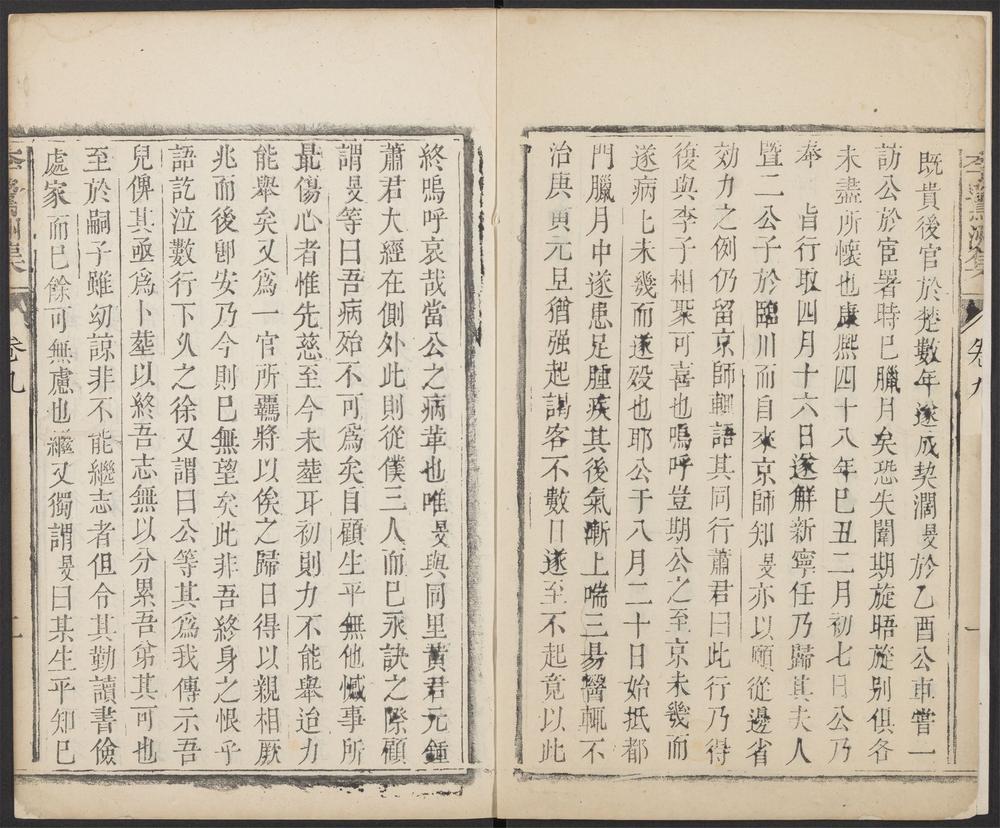 既貴後官於楚數年遂成契濶旻於乙酉公車嘗一
訪公於宦署時已臘月矣恐失闈期旋晤旋别俱各
未盡所懷也康熙四十八年巳丑二月初七日公乃
奉　旨行取四月十六日遂解新寧任乃歸其夫人
暨二公子於臨川而自來京師知旻亦以願從邊省
効力之例仍留京師輙語其同行蕭君曰此行乃得
復與李子相聚可喜也嗚呼豈期公之至京未幾而
遂病乜未幾而遂殁也耶公于八月二十日始抵都
門臘月中遂患足腫疾其後氣漸上喘三易醫輒不
治庚寅元旦猶强起謁客不數日遂至不起竟以此
卷九
一
終嗚呼哀哉當公之病革也唯旻與同里黄君元鍾
蕭君大經在側外此則從僕三人而巳永訣之際顧
謂旻等曰吾病殆不可爲矣自顧生平無他憾事所
最傷心者惟先慈至今未塟耳初則力不能舉迨力
能舉矣又爲一官所羈將以俟之歸日得以親相厥
兆而後卽安乃今則已無望矣此非吾終身之恨乎
語訖泣數行下久之徐又謂曰公等其爲我傳示吾
兒俾其亟爲卜塟以終吾志無以分累吾弟其可也
至於嗣子雖幼諒非不能繼志者但令其勤讀書儉
處家而巳餘可無慮也繼又獨謂旻曰某生平知巳
卷九
二